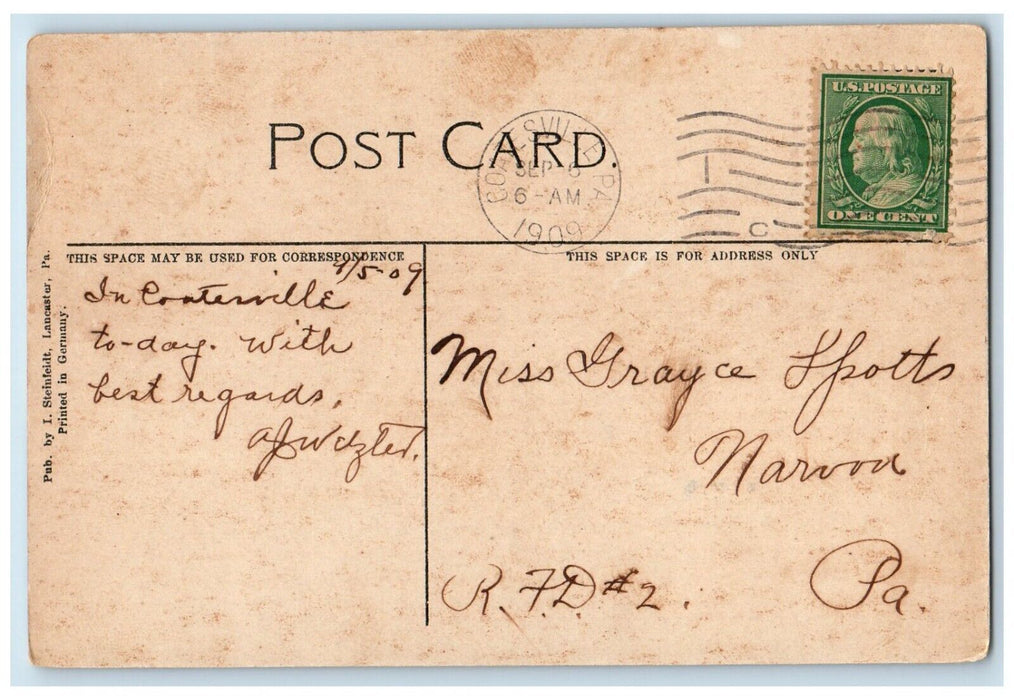 POST CARD.
COATESVILLE PA.
SEP 6
6-AM
1909
U.S. POSTAGE
ONE CENT
THIS SPACE MAY BE USED FOR CORRESPONDENCE
THIS SPACE IS FOR ADDRESS ONLY
9/5-09
In Coatesville
to-day. With
best regards,
Miss Grayce Spotts
Narvon
R.F.D. #2.
Pa.
Pub. by I. Steinfeldt, Lancaster, Pa.
Printed in Germany.